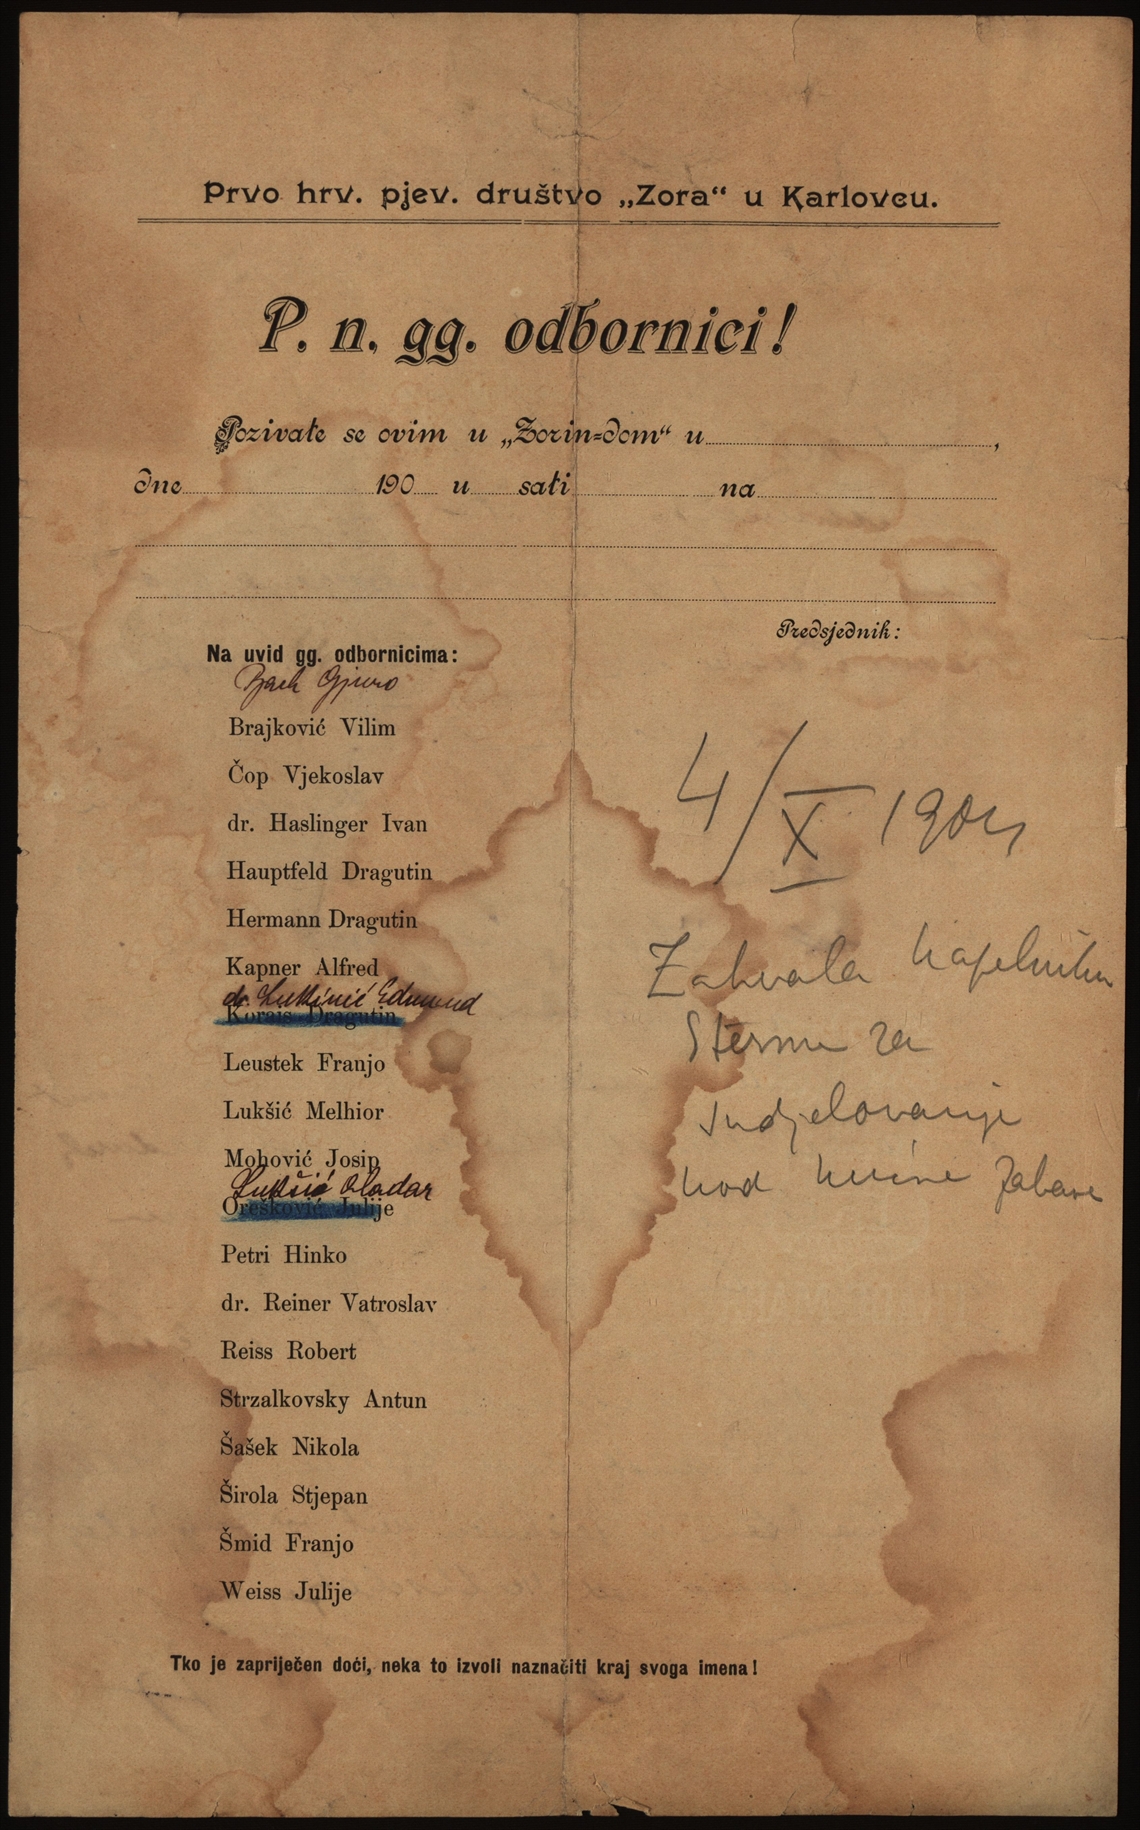 Prvo hrv. pjev. društvo „Zora“ u Karlovcu.
P. n. gg. odbornici!
Pozivate se ovim u „Zorin-dom“ u ,
dne 190 u sati na
Predsjednik:
Na uvid gg. odbornicima:
Bach Gjuro
Brajković Vilim
Čop Vjekoslav
dr. Haslinger Ivan
Hauptfeld Dragutin
Hermann Dragutin
Kapner Alfred
dr. Lukinić Edmund
Korais Dragutin
Leustek Franjo
Lukšić Melhior
Mohović Josip
Lukšić Aladar
Orešković Julije
Petri Hinko
dr. Reiner Vatroslav
Reiss Robert
Strzalkovsky Antun
Šašek Nikola
Širola Stjepan
Šmid Franjo
Weiss Julije
Tko je zapriječen doći, neka to izvoli naznačiti kraj svoga imena!
4/X 1904
Zahvala kapelniku
Stermu za
sudjelovanje
kod kućne zabave